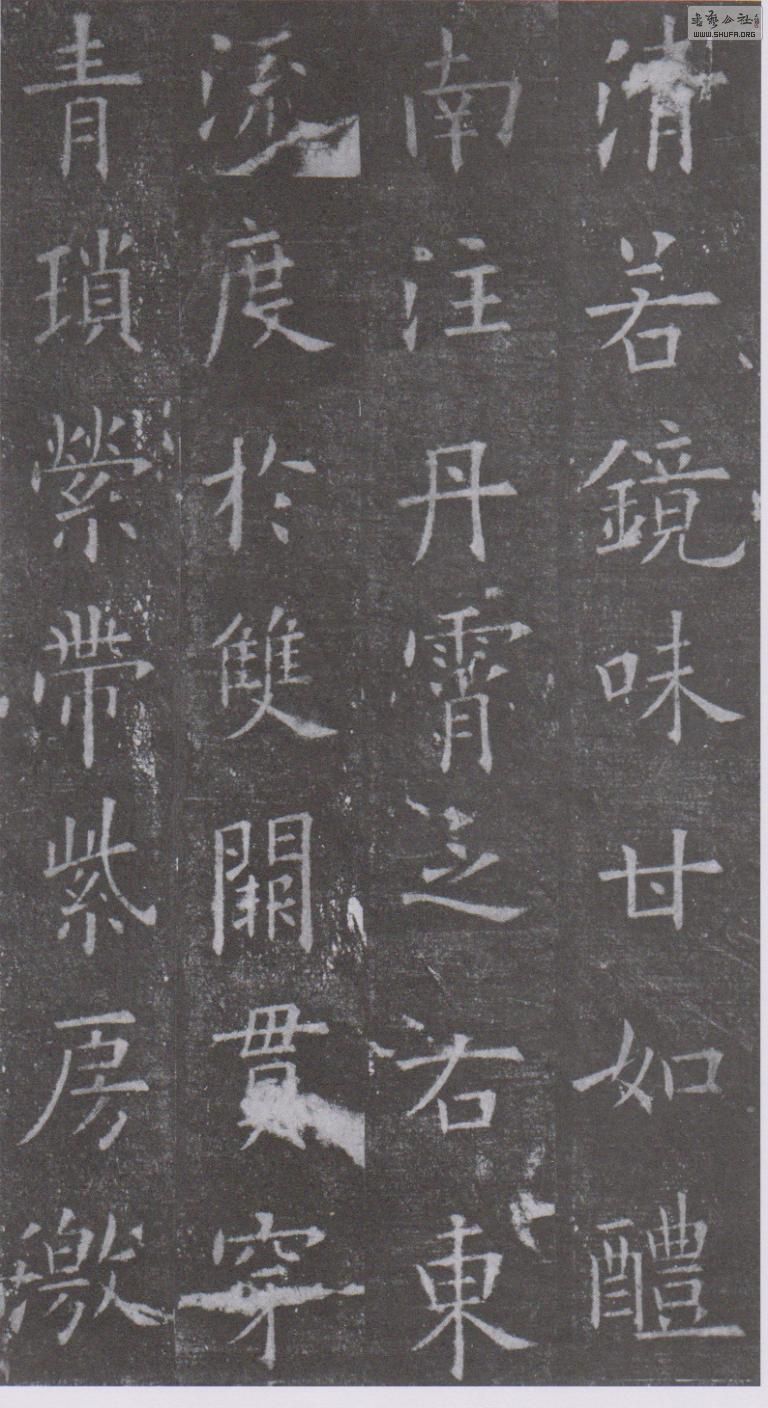 清若鏡味甘如醴
南注丹霄之右東
流度於雙闕貫穿
青瑣縈帶紫房激
書藝公社
WWW.SHUFA.ORG